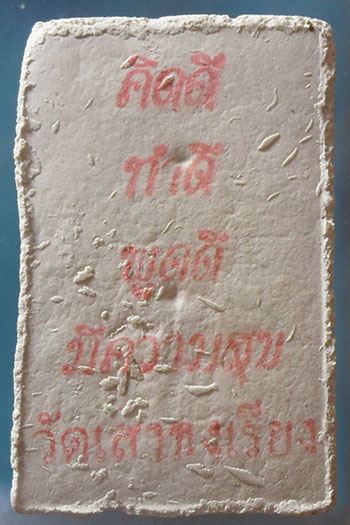 คิดดี
ทำดี
พูดดี
มีความสุข
วัดเสาธงเรียง